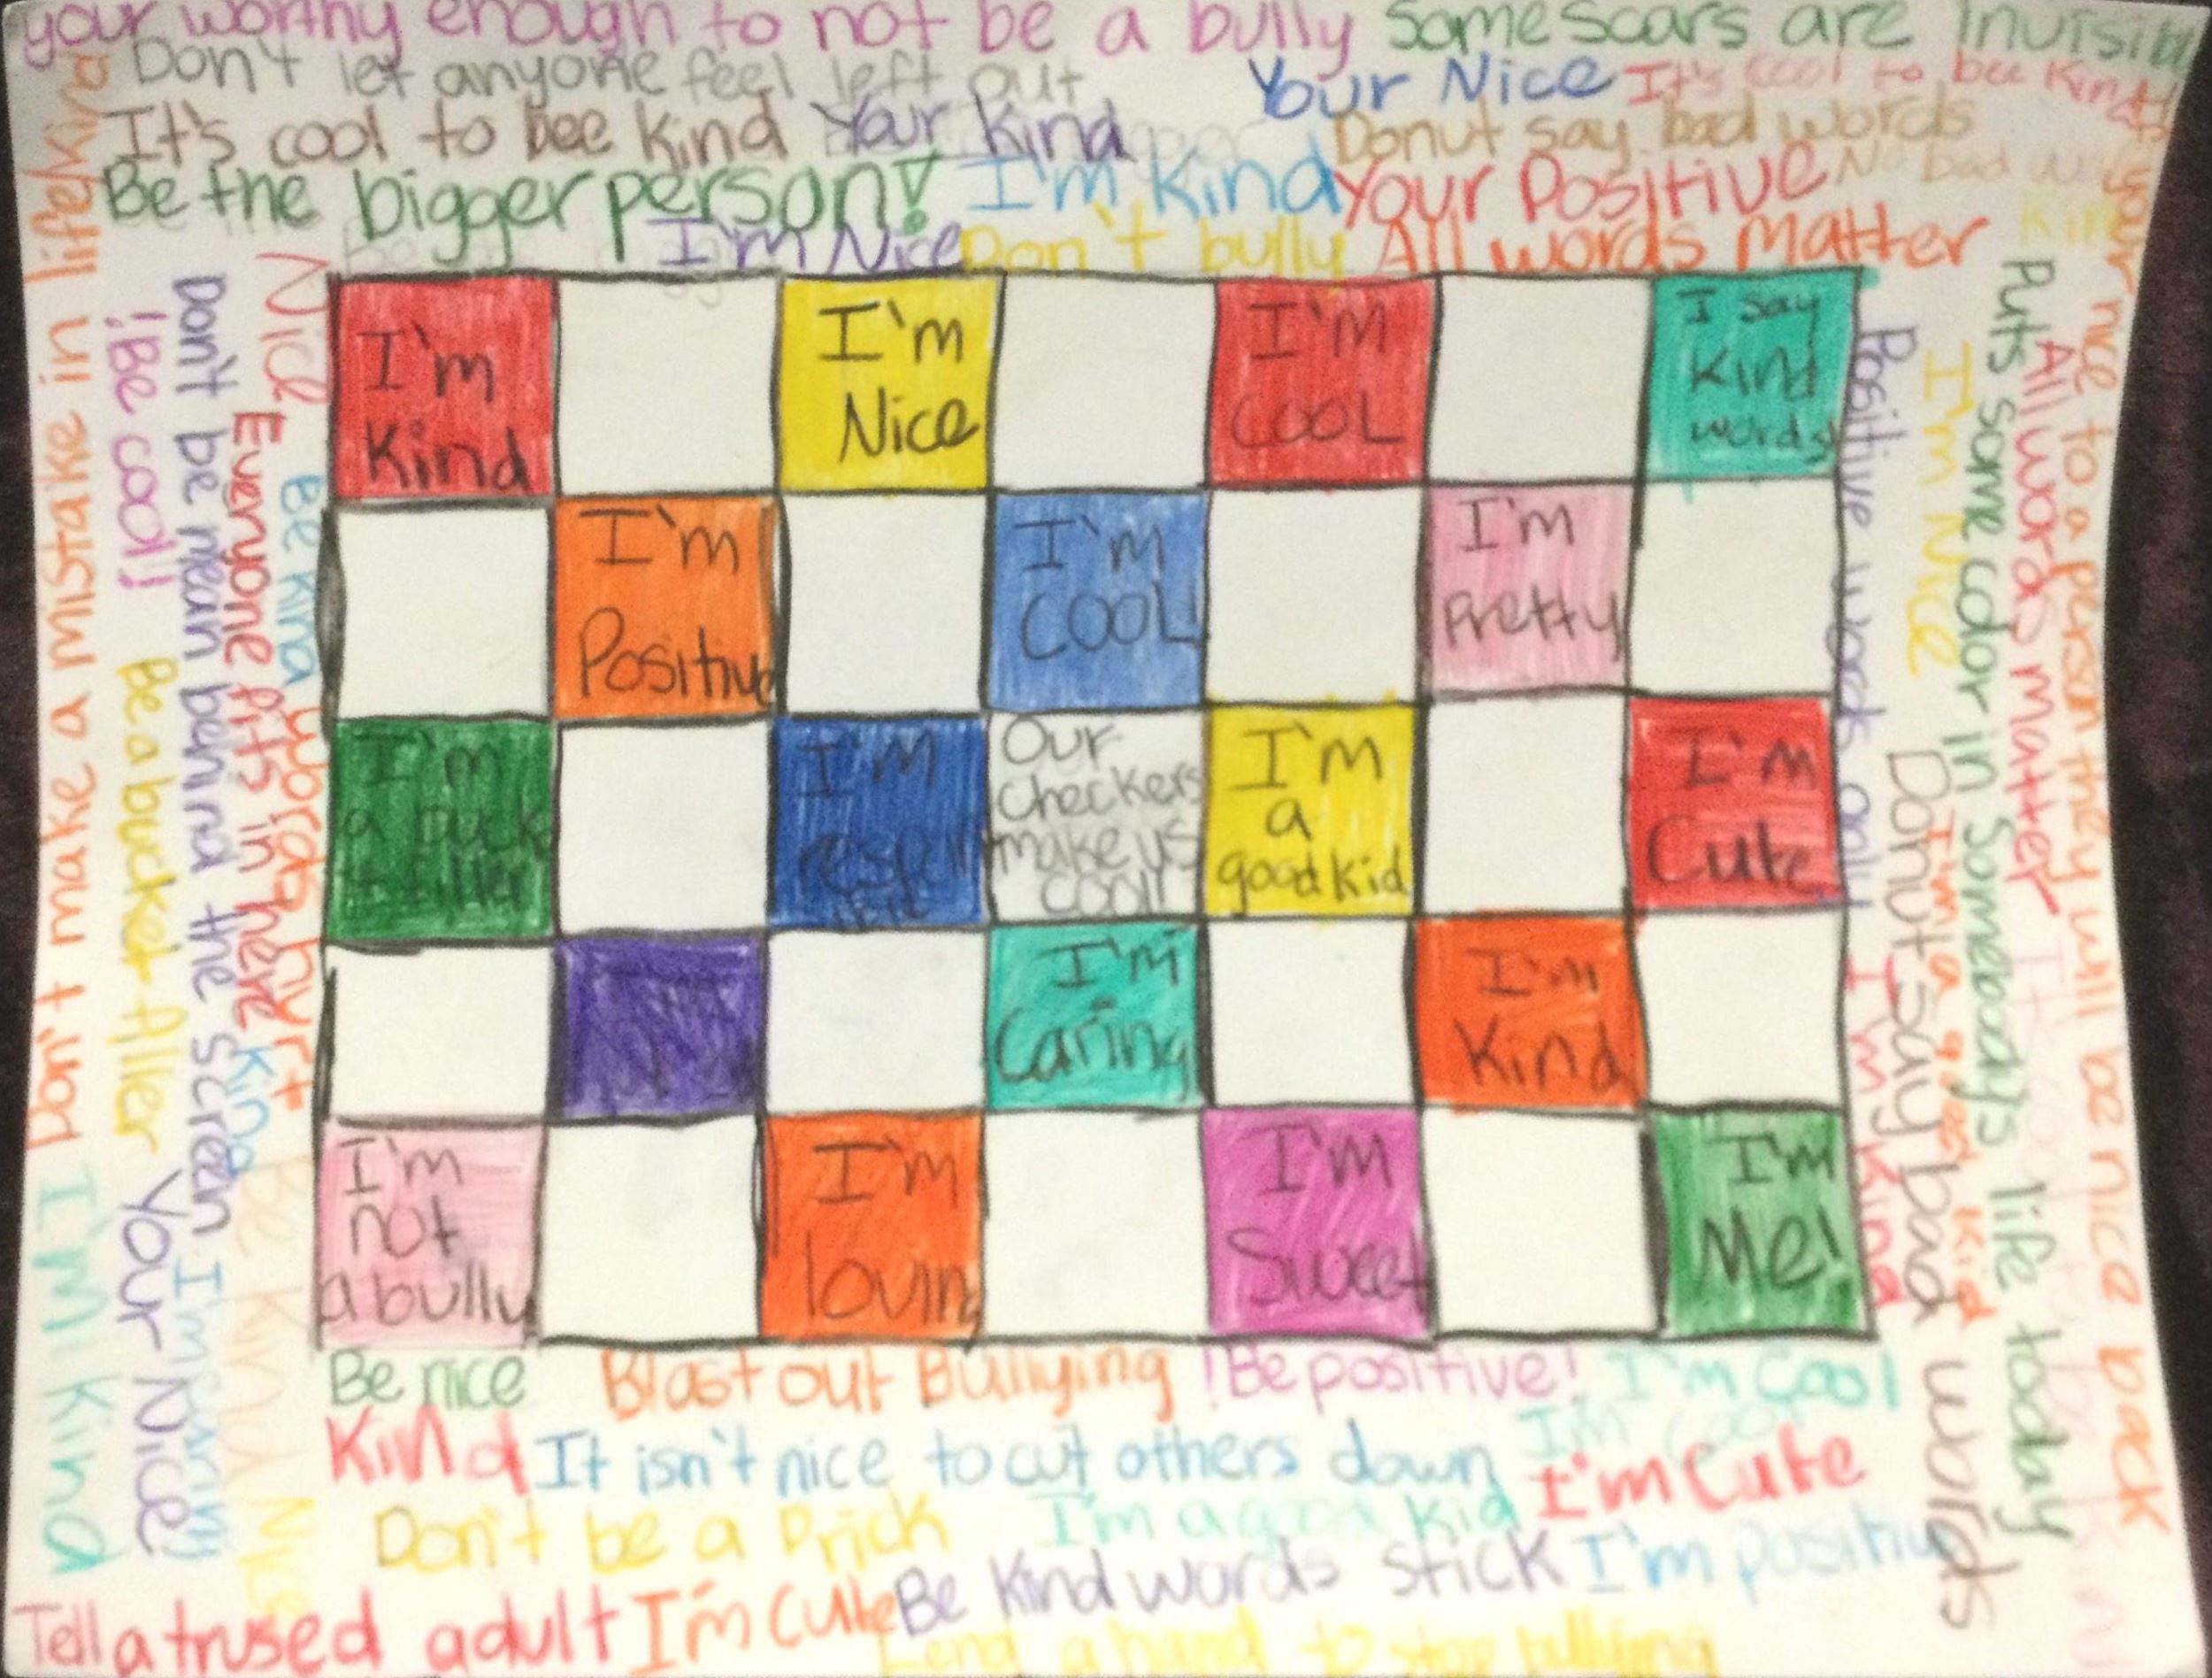 your worthy enough to not be a bully Some scars are Invisib
Don't let anyone feel left out Your Nice It's cool to bee Kind
It's cool to bee Kind Your Kind Donut say bad words
Be the bigger person! I'm Kind Your Positive No bad
I'm Nice Don't bully All words Matter
Don't make a mistake in life
Kind
I'm Kind
!Be cool!
Be a bucket filler
Your Nice
Don't be mean behind the screen
Nice
Everyone fits in here
Be kind
words hurt
Kind
Be Kind
Nice
I'm
Kind
I'm
Nice
I'm
COOL
I say
Kind
words!
I'm
Positive
I'm
COOL!
I'm
Pretty
I'm
a buck
t filler
I'm
respon
Our
Checkers
make us
cool!
I'm
a
good kid
I'm
Cute
I'm
Caring
I'm
Kind
I'm
not
a bully
I'm
lovin
I'm
Sweet
I'm
Me!
Positive words only
I'm Kind
I'm Nice
Donut say bad words
I'm a good Kid
Puts some color in somebody's life today
All words matter
your nice to a person they will be nice back
Be nice Blast out Bullying !Be positive! I'm Cool
Kind It isn't nice to cut others down I'm Cool
I'm Cute
Don't be a Prick I'm a good Kid
Be Kind words stick I'm positive
Tell a trused adult I'm Cute
Lend a hand to stop bullying